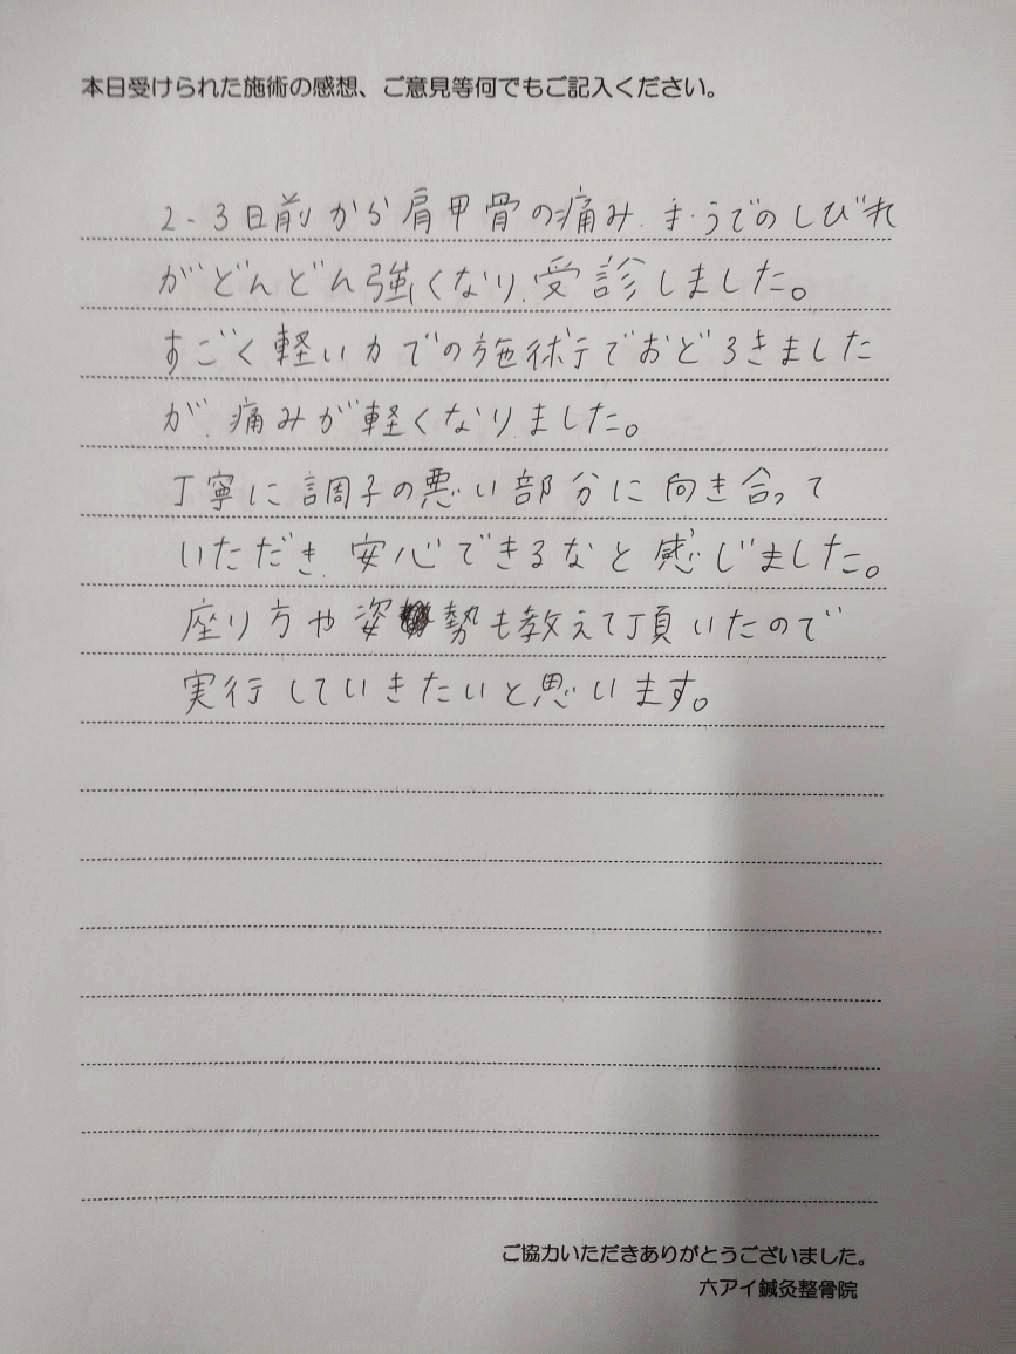 本日受けられた施術の感想、ご意見等何でもご記入ください。
2-3日前から肩甲骨の痛み、手・うでのしびれ
がどんどん強くなり、受診しました。
すごく軽い力での施術でおどろきました
が、痛みが軽くなりました。
丁寧に調子の悪い部分に向き合って
いただき、安心できるなと感じました。
座り方や姿勢も教えて頂いたので
実行していきたいと思います。
ご協力いただきありがとうございました。
六アイ鍼灸整骨院